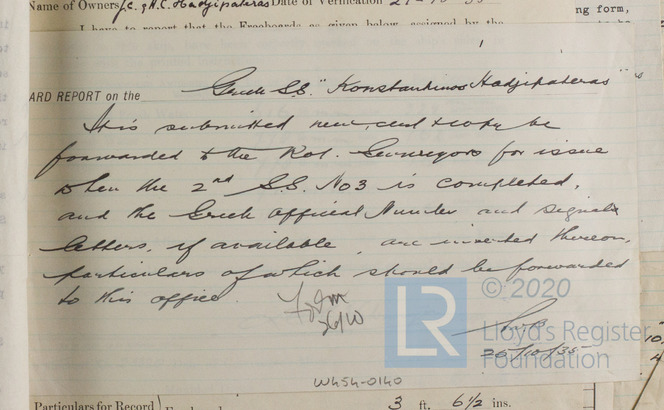 Name of Owners J.C. & H.C. Hadjipateras Date of Verification
ng form,
I have to report that the Freeboards as given below, assigned by the
ARD REPORT on the Greek S.S. "Konstantinos Hadjipateras"
It is submitted new cert be
forwarded to the Rot. Surveyors for issue
when the 2nd S.S. No3 is completed,
and the Greek Official Number and signal
letters, if available, are inserted thereon,
particulars of which should be forwarded
to this office.
26/10
© 2020
LR
Lloyd's Register
Foundation
W454-0140
Particulars for Record
3 ft. 6½ ins.